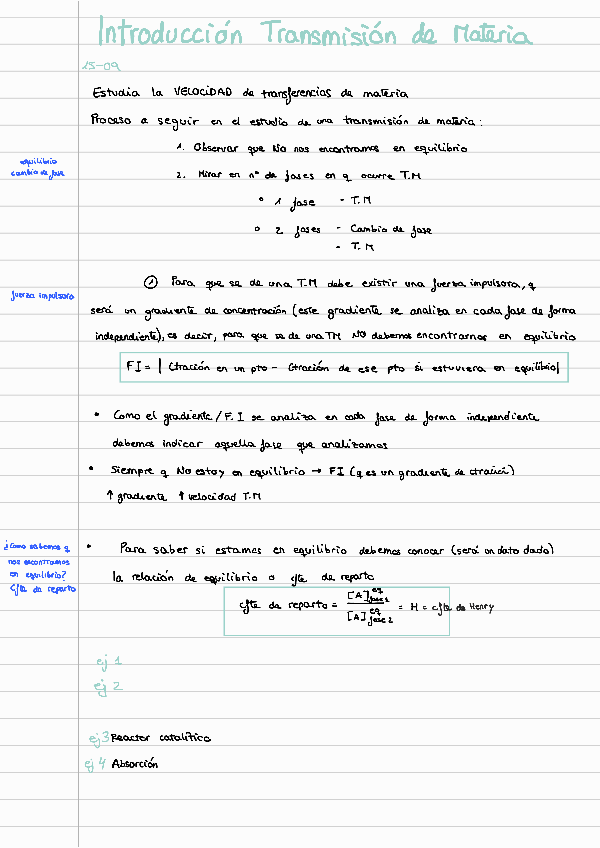 Introducción Transmisión de Materia
15-09
Estudia la VELOCIDAD de transferencias de materia
Proceso a seguir en el estudio de una transmisión de materia:
1. Observar que No nos encontramos en equilibrio
equilibrio
cambio de fase
2. Mirar en nº de fases en q ocurre T.M
° 1 fase - T.M
° 2 fases - Cambio de fase
- T.M
① Para que se de una T.M debe existir una fuerza impulsora, q
fuerza impulsora
será un gradiente de concentración (este gradiente se analiza en cada fase de forma
independiente), es decir, para que se de una TM NO debemos encontrarnos en equilibrio
FI = | Ctración en un pto - Ctración de ese pto si estuviera en equilibrio|
• Como el gradiente/F.I se analiza en cada fase de forma independiente
debemos indicar aquella fase que analizamos
• Siempre q No estoy en equilibrio → FI (q es un gradiente de ctración)
↑ gradiente ↑ velocidad T.M
¿Como sabemos q
nos encontramos
en equilibrio?
Cfte de reparto
• Para saber si estamos en equilibrio debemos conocer (será un dato dado)
la relación de equilibrio o cfte de reparto
cfte de reparto = [A]eq fase 1 / [A]eq fase 2 = H = cfte de Henry
ej 1
ej 2
ej 3 Reactor catalítico
ej 4 Absorción